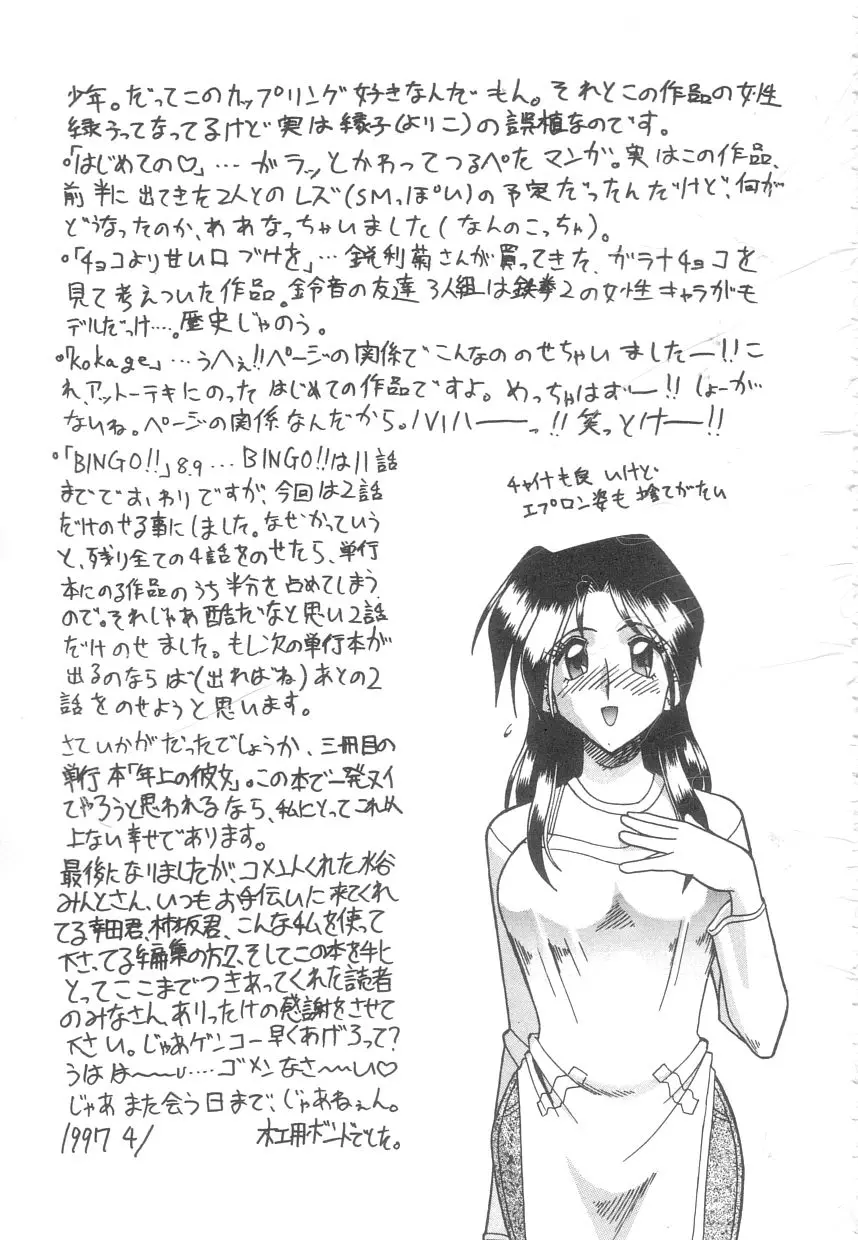 少年。だってこのカップリング好きなんだもん。それとこの作品の女性
緑ってなってるけど実は縁子(よりこ)の誤植なのです。
・「はじめての♡」…ガラッとかわってつるぺたマンガ。実はこの作品、
前半に出てきた2人とのレズ(SMっぽい)の予定だったんだけど、何が
どうなったのか、ああなっちゃいました(なんのこっちゃ)。
・「チョコより甘い口づけを」…鋭利菊さんが買ってきた、ガラナチョコを
見て考えついた作品。鈴音の友達3人組は鉄拳2の女性キャラがモ
デルだっけ…。歴史じゃのう。
・「kokage」…うへぇ!!ページの関係でこんなののせちゃいましたー!!こ
れ、アットーテキにのったはじめての作品ですよ。めっちゃはずー!!しょーが
ないね。ページの関係なんだから。ハハハーーっ!!笑っとけー!!
・「BINGO!!」8.9…BINGO!!は11話
までで おわりですが、今回は2話
だけのせる事にしました。なぜかっていう
と、残り全ての4話をのせたら、単行
本にのる作品のうち半分を占めてしまう
ので。それじゃあ酷だなと思い2話
だけのせました。もし次の単行本が
出るのならば(出ればね)あとの2
話をのせようと思います。
さていかがだったでしょうか、三冊目の
単行本「年上の彼女」。この本で一発ヌイ
てやろうと思われるなら、私にとってこれ以
上ない幸せであります。
最後になりましたが、コメントくれた水谷
みんとさん、いつもお手伝いに来てくれ
てる幸田君、柿坂君、こんな私を使って
下さってる編集の方々、そしてこの本を手に
とってここまでつきあってくれた読者
のみなさん、ありったけの感謝をさせて
下さい。じゃあゲンコー早くあげろって?
うはは〜〜…ゴメンなさ〜〜い♡
じゃあまた会う日まで、じゃあねぇん。
1997 4/ 木工用ボンドでした。
チャイナも良いけど
エプロン姿も捨てがたい